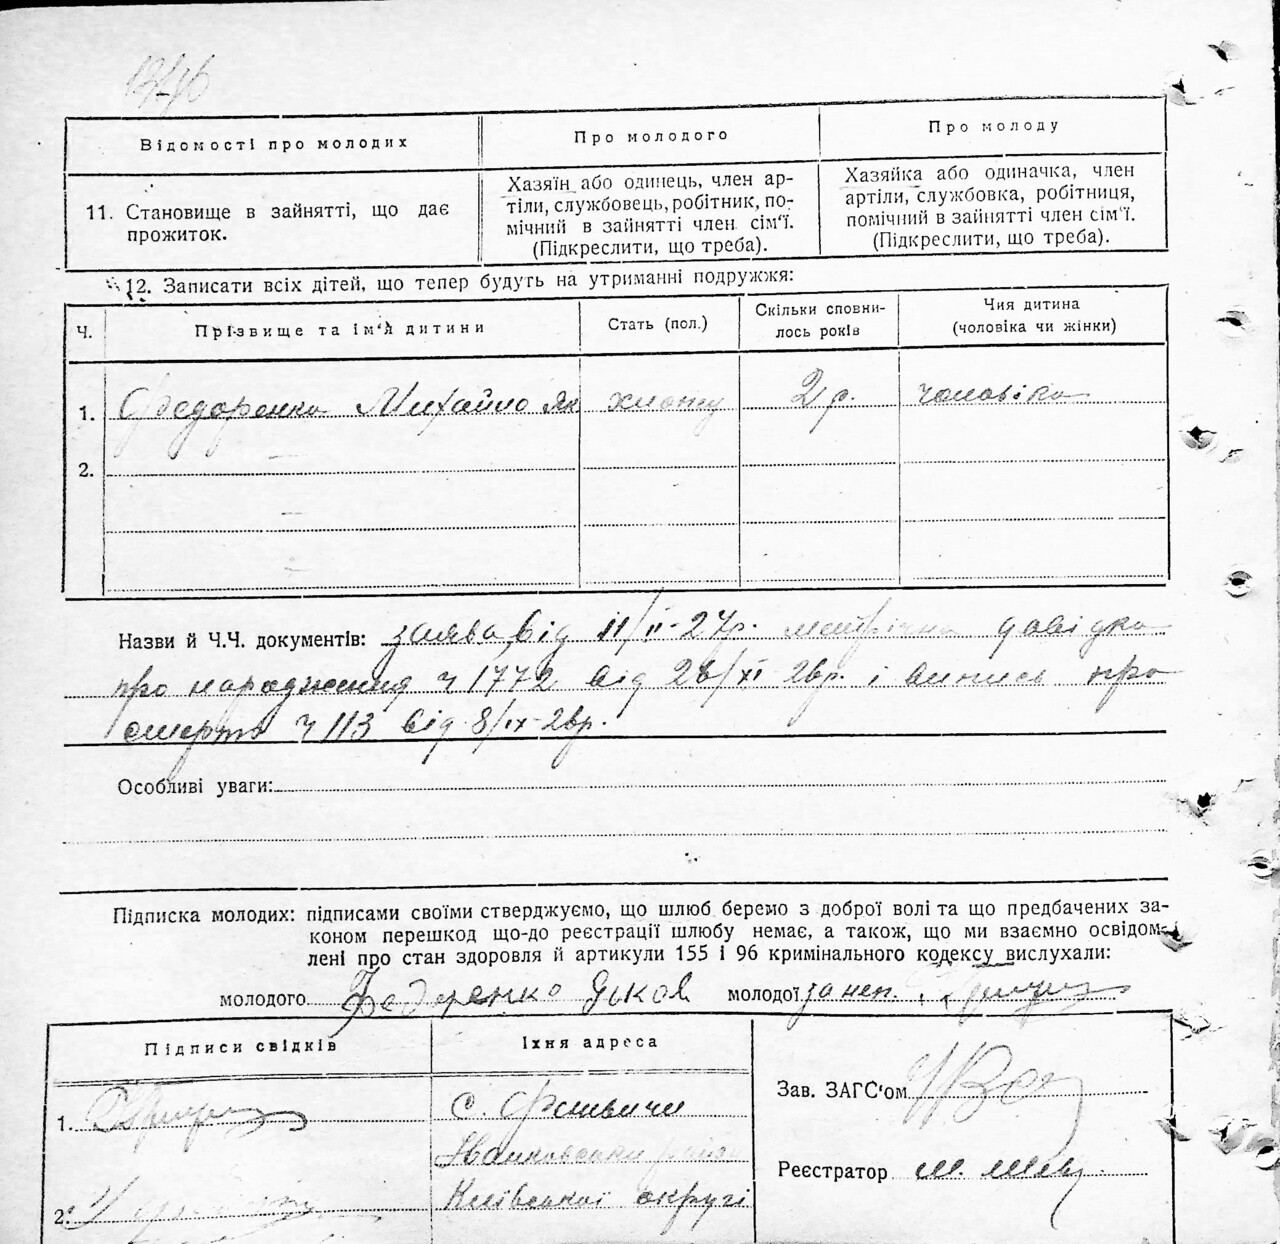 Відомості про молодих
Про молодого
Про молоду
11. Становище в зайнятті, що дає
прожиток.
Хазяїн або одинець, член ар-
тіли, службовець, робітник, по-
мічний в зайнятті член сім'ї.
(Підкреслити, що треба).
Хазяйка або одиначка, член
артіли, службовка, робітниця,
помічний в зайнятті член сім'ї.
(Підкреслити, що треба).
12. Записати всіх дітей, що тепер будуть на утриманні подружжя:
Ч.
Прізвище та ім'я дитини
Стать (пол.)
Скільки сповни-
лось років
Чия дитина
(чоловіка чи жінки)
1. Федоренко Михайло Як
2 р.
чоловіка
2.
Назви й Ч.Ч. документів: заява від 11/II-27р. метрична довідка
про народження ч 1772 від 26/XI-26р. і випись про
смерть ч 113 від 8/IX-26р.
Особливі уваги:
Підписка молодих: підписами своїми стверджуємо, що шлюб беремо з доброї волі та що предбачених за-
коном перешкод що-до реєстрації шлюбу немає, а також, що ми взаємно освідом-
лені про стан здоровля й артикули 155 і 96 кримінального кодексу вислухали:
молодого Федоренко Яков молодої за неп.
Підписи свідків
Їхня адреса
1.
с. Фененичи
Іванковський район
Київської округі
2.
Зав. ЗАГС'ом
Реєстратор